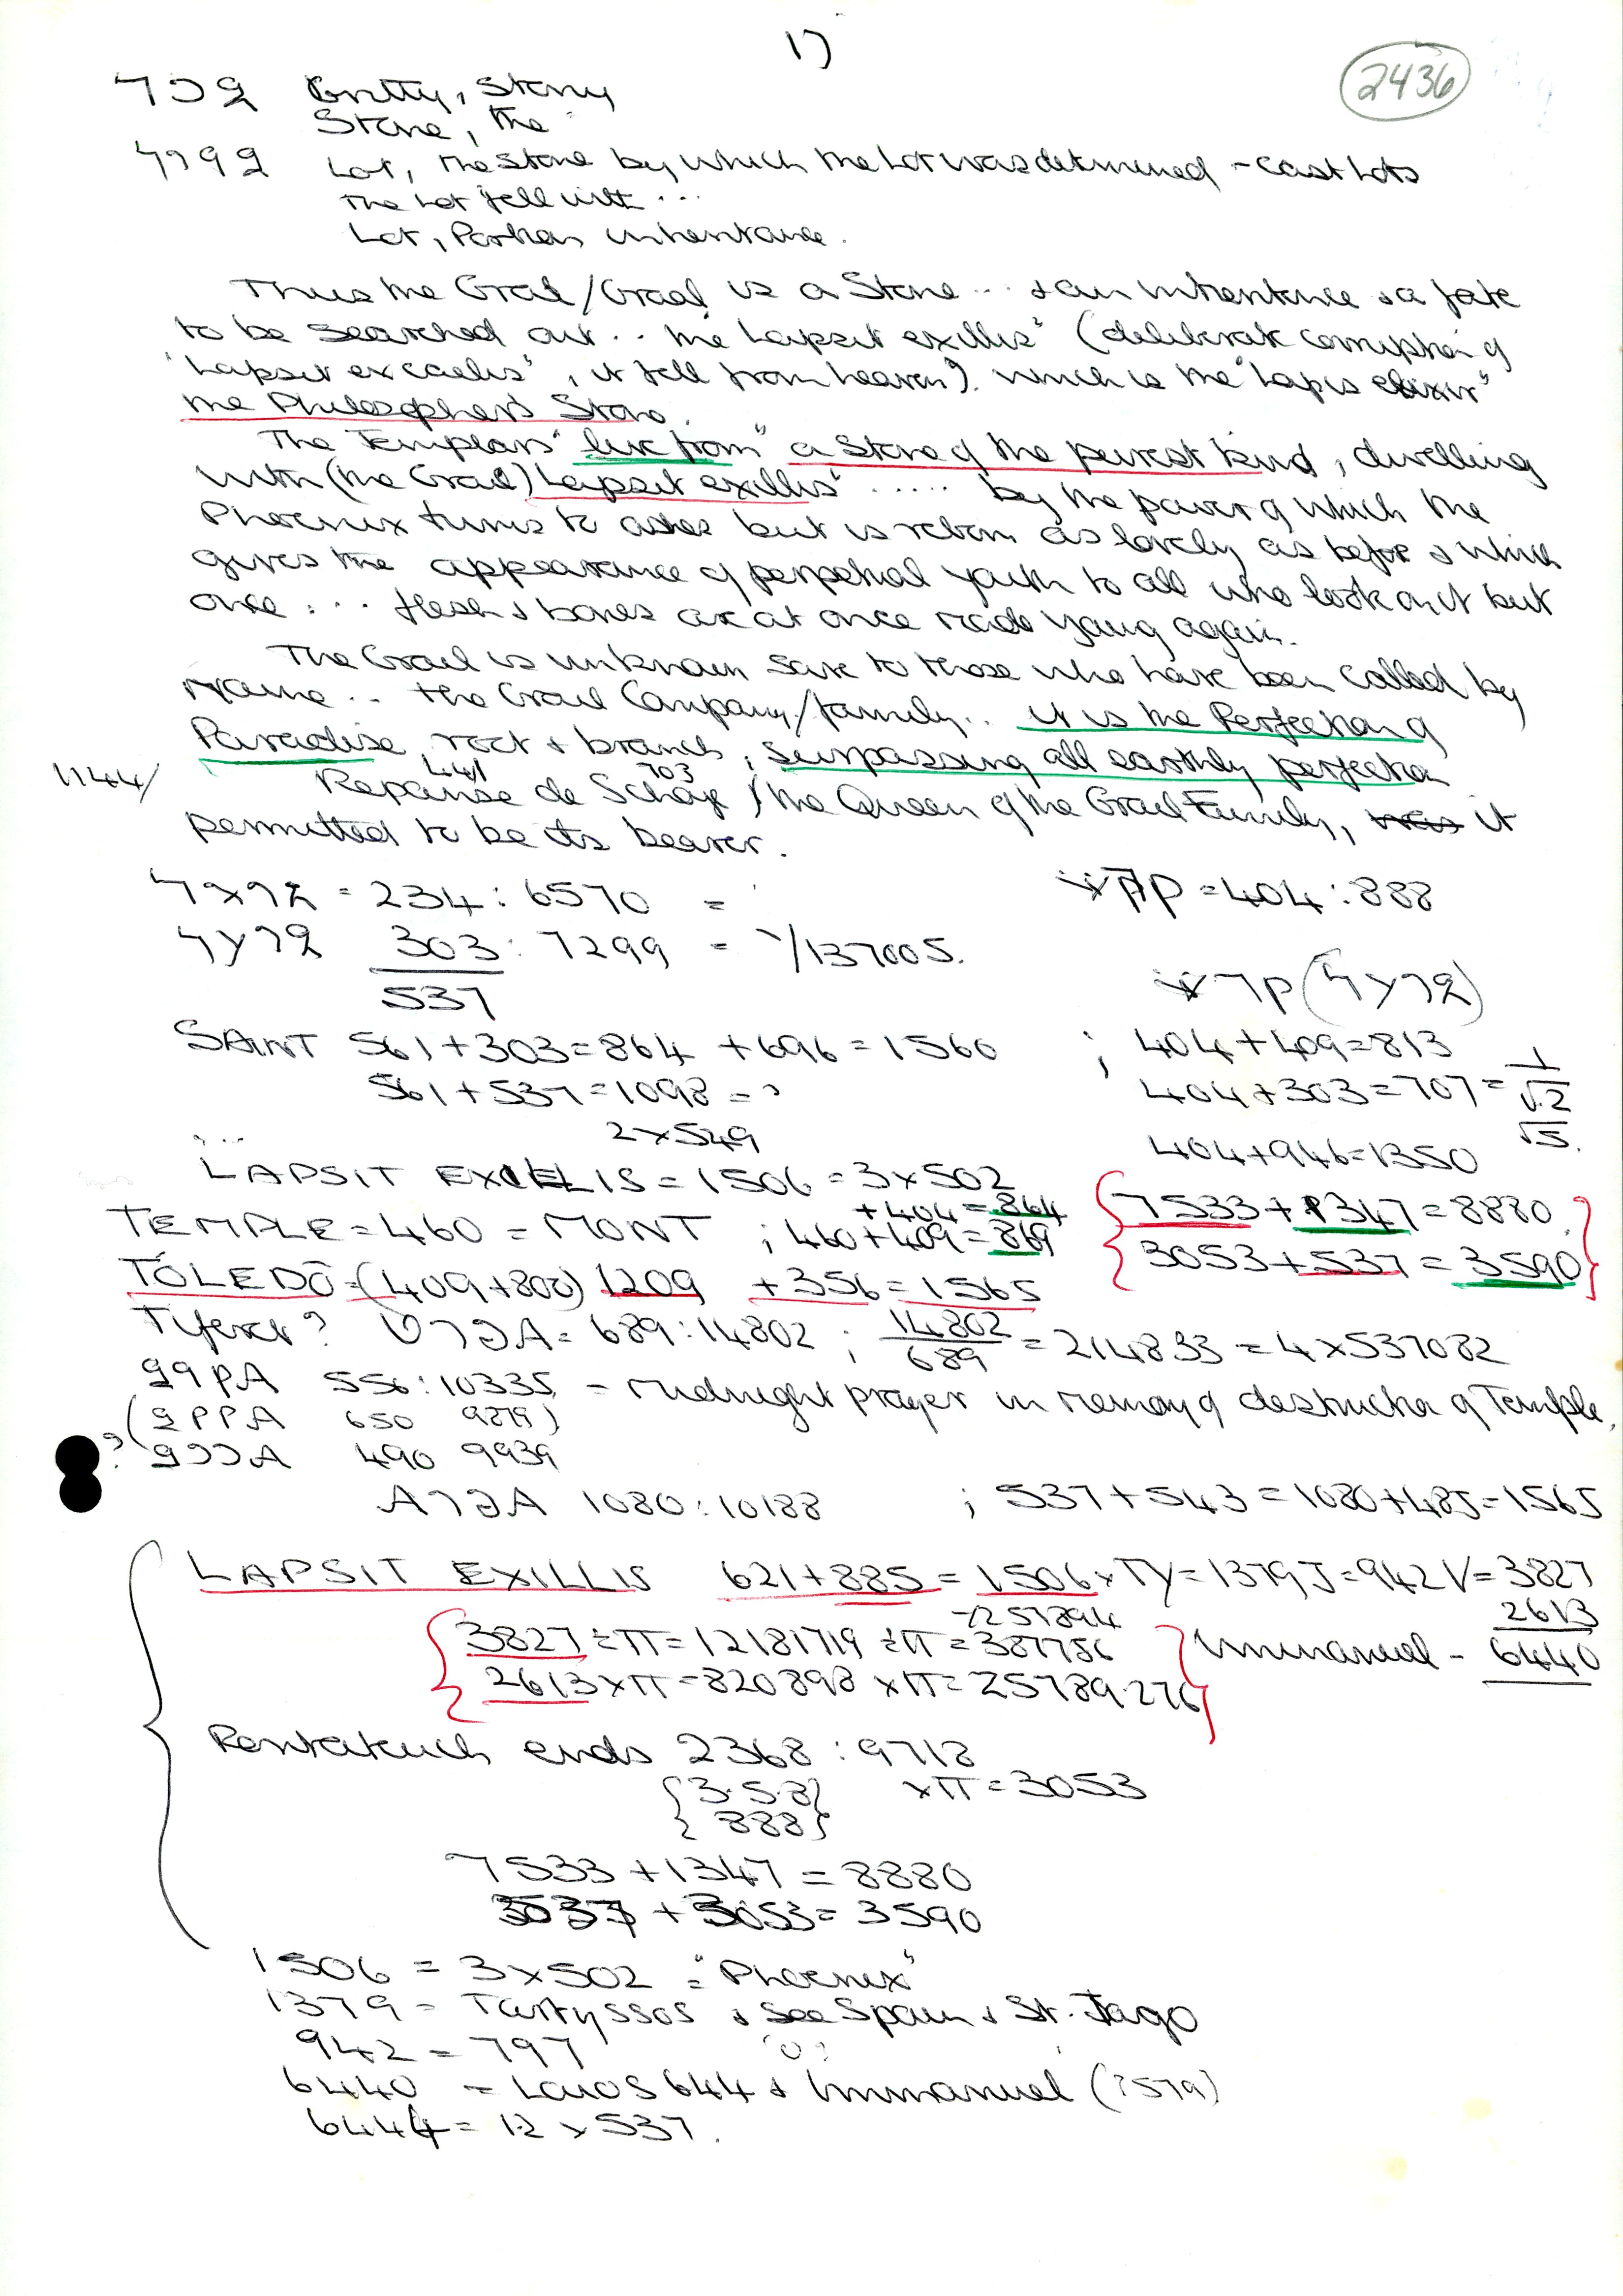 1)
2436
Gritty, Stony
Stone, the
Lot, the stone by which the Lot was determined - cast lots
The Lot fell with ...
Lot, Portion inheritance.
Thus the Grail/Graal is a Stone ... & an inheritance & a fate
to be searched out .. the Lapsit exillis" (deliberate corruption of
'Lapsit ex caelis', it fell from heaven). Which is the "Lapis elixir"
the Philosopher's Stone.
The Templars "live from" a Stone of the purest kind, dwelling
with (the Grail) Lapsit exillis" ..... by the power of which the
Phoenix turns to ashes but is reborn as lovely as before & which
gives the appearance of perpetual youth to all who look on it but
once ... flesh & bones are at once made young again.
The Grail is unknown save to those who have been called by
name .. the Grail Company/family.. it is the Perfection of
Paradise, root & branch, surpassing all earthly perfection
1144/ 441 703
Repanse de Schoye, the Queen of the Grail Family, was it
permitted to be its bearer.
= 234 : 6570 =
= 404 : 888
303 : 7299 = 1/137005.
537
SAINT 561+303=864 +696=1560 ; 404+409=813
561+537=1098 = ?
404+303=707= 1/√2
2x549
√5.
404+946=1350
LAPSIT EXCELIS = 1506 = 3x502
+404=864
7533+1347=8880
TEMPLE = 460 = MONT ; 460+409=869
3053+537=3590
TOLEDŌ=(409+800) 1209 +356=1565
= 689:14802 ; 14802/689 = 214833 = 4x537082
556:10335 = Midnight prayer in memory of destruction of Temple.
650 9279)
? 490 9939
1080:10188 ; 537+543=1080+485=1565
LAPSIT EXILLIS 621+885=1506xTY=1379, J=942 V=3827
2613
3827 ÷π=12181719 ÷π=387756
Immanuel - 6440
2613xπ=820898 xπ=25789.276
Pentateuch ends 2368 : 9718
{3.5.8} xπ=3053
{888}
7533+1347=8880
537 + 3053=3590
1506 = 3x502 = "Phoenix"
1379 = Tartyssos & see Spain & St. Jago
942 = 797
6440 = Laios 644 & Immanuel (?579)
6444 = 12 x 537.